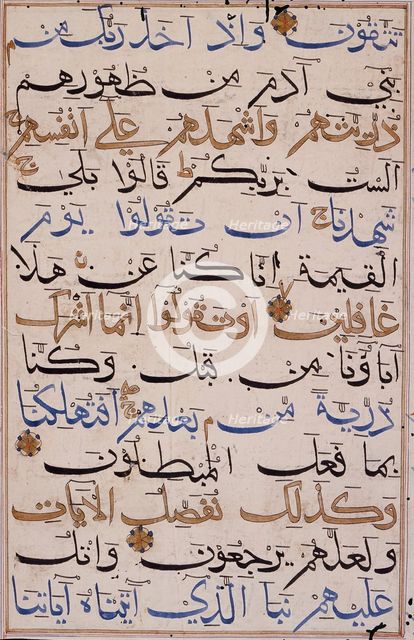 تتقون واذ اخذ ربك من
بني آدم من ظهورهم
ذريتهم واشهدهم علي انفسهم
الست بربكم قالوا بلي
شهدنا ان تقولوا يوم
القيمة انا كنا عن هذا
غافلين او تقولوا انما اشرك
آباؤنا من قبل وكنا
ذرية من بعدهم افتهلكنا
بما فعل المبطلون
وكذلك نفصل الايات
ولعلهم يرجعون واتل
عليهم نبا الذي آتيناه آياتنا